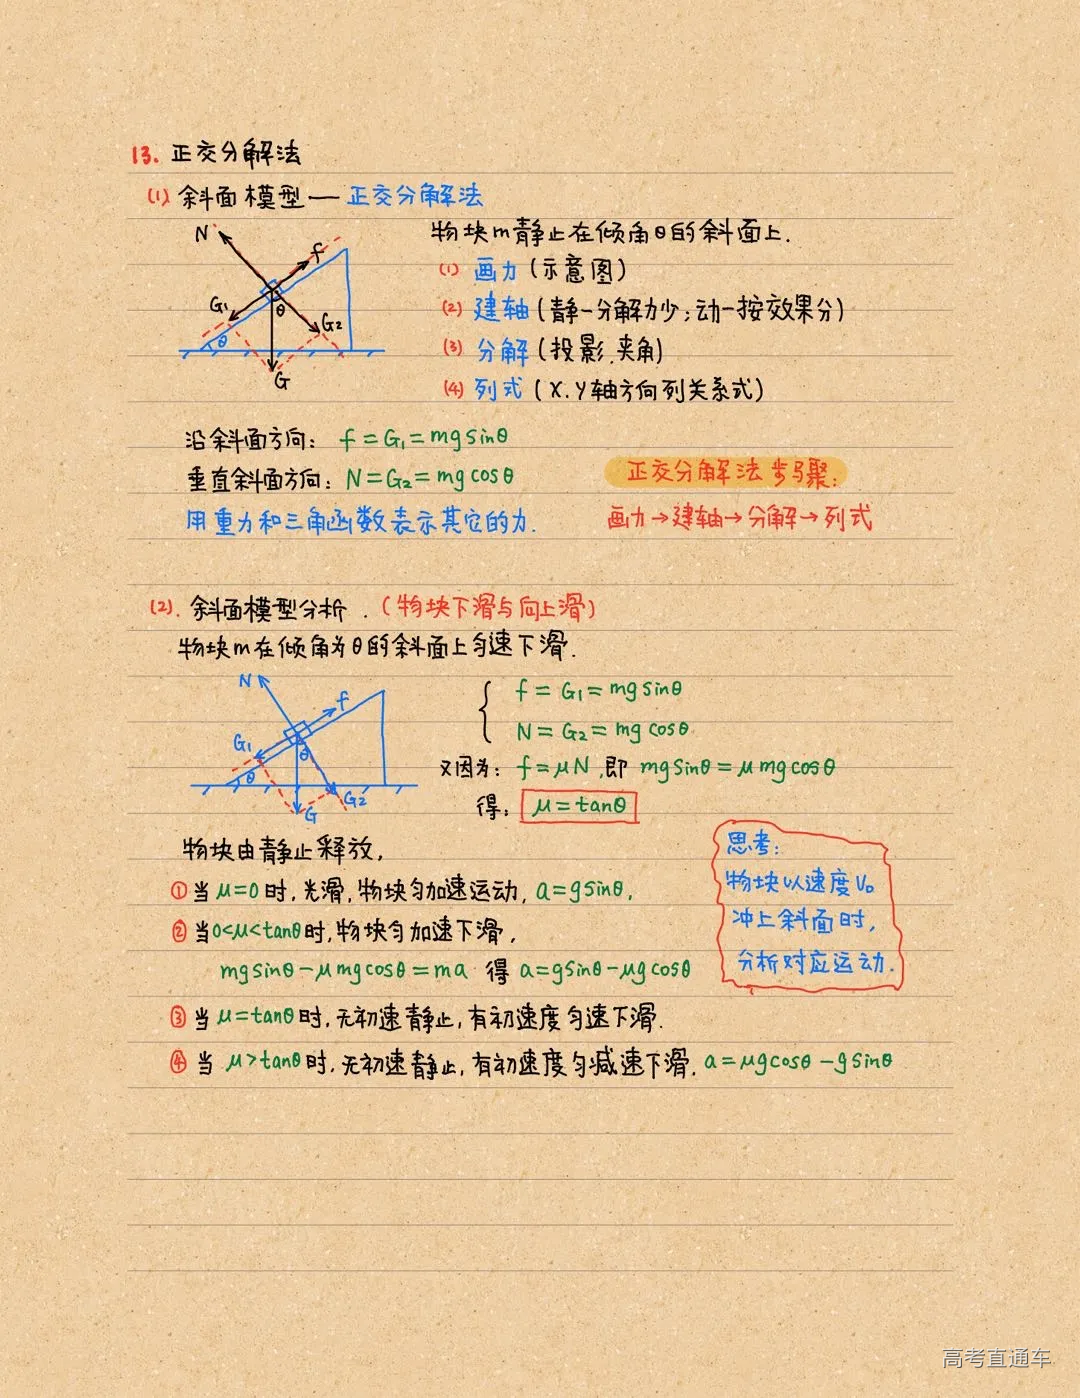 13. 正交分解法
(1) 斜面模型 — 正交分解法
物块m静止在倾角θ的斜面上.
N
f
G₁
θ
G₂
θ
G
(1) 画力 (示意图)
(2) 建轴 (静-分解力少; 动-按效果分)
(3) 分解 (投影.夹角)
(4) 列式 (X.Y轴方向列关系式)
沿斜面方向: f = G₁ = mgsinθ
垂直斜面方向: N = G₂ = mgcosθ
用重力和三角函数表示其它的力.
正交分解法步骤:
画力→建轴→分解→列式
(2). 斜面模型分析. (物块下滑与向上滑)
物块m在倾角为θ的斜面上匀速下滑.
N
f
G₁
θ
θ
G₂
G
f = G₁ = mgsinθ
N = G₂ = mgcosθ
又因为: f = μN, 即 mgsinθ = μmgcosθ
得: μ = tanθ
物块由静止释放,
① 当 μ=0 时, 光滑, 物块匀加速运动, a=gsinθ,
② 当0<μ<tanθ时, 物块匀加速下滑,
mgsinθ - μmgcosθ = ma 得 a=gsinθ-μgcosθ
③ 当 μ=tanθ时, 无初速静止, 有初速度匀速下滑.
④ 当 μ>tanθ时, 无初速静止, 有初速度匀减速下滑. a=μgcosθ-gsinθ
思考:
物块以速度V₀
冲上斜面时,
分析对应运动.
高考直通车